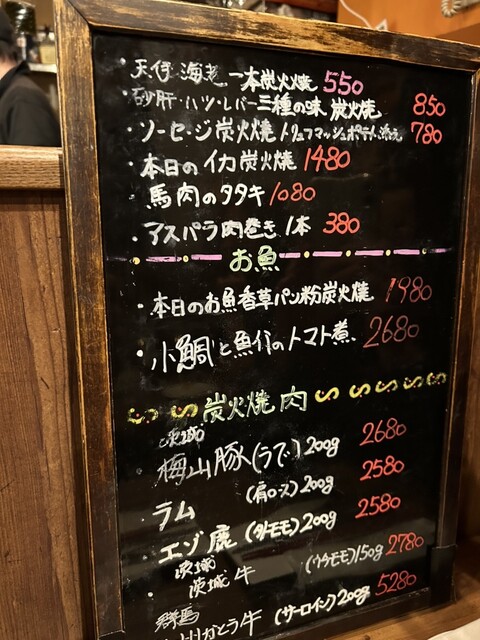 ・天使海老一本炭火焼 550
・砂肝・ハツ・レバー三種の味 炭火焼 850
・ソーセージ炭火焼 トリュフマッシュポテト添え 780
・本日のイカ炭火焼 1480
・馬肉のタタキ 1080
・アスパラ肉巻き 1本 380
お魚
・本日のお魚香草パン粉炭火焼 1980
・小鯛と魚介のトマト煮 2680
炭火焼肉
茨城
・梅山豚(ラブ)200g 2680
・ラム (肩ロース)200g 2580
・エゾ鹿 (外モモ)200g 2580
茨城
・茨城牛 (ウチモモ)150g 2780
群馬
かとう牛 (サーロイン)200g 5280